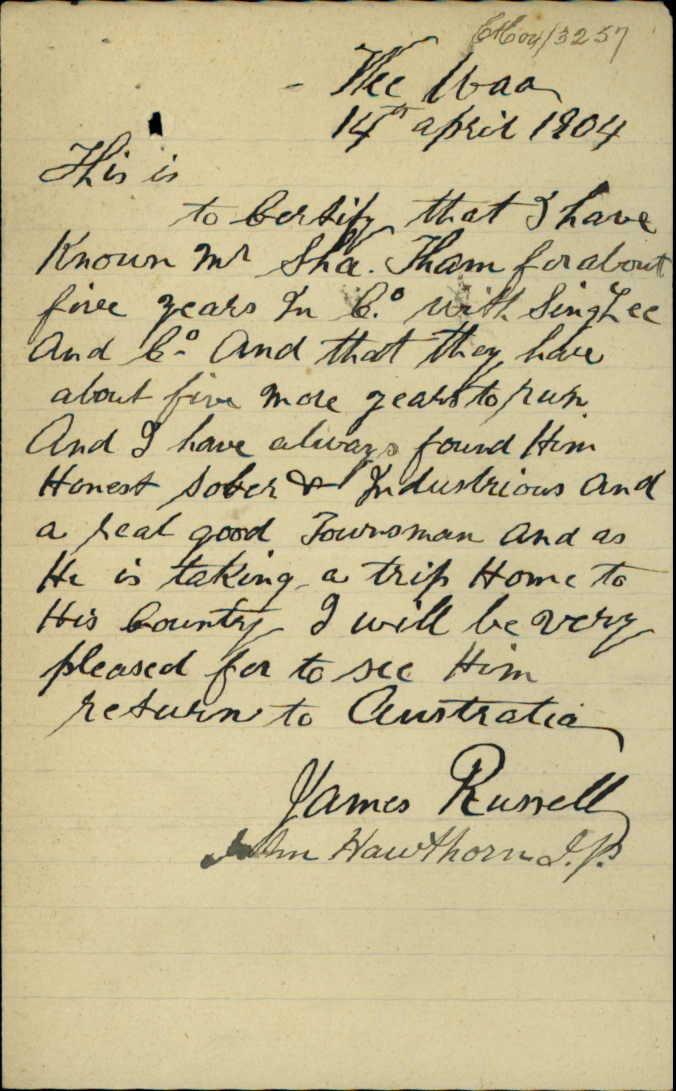 /3257
Wee Waa
14th april 1904
This is
to Certify that I have
Known Mr Sha. Tham for about
five years In Co. with Sing Lee
And Co. And that they have
about five more years to run
And I have always found Him
Honest Sober & Industrious and
a real good Townsman And as
He is taking a trip Home to
His Country I will be very
pleased for to see Him
return to Australia
James Russell
John Hawthorn J.P.